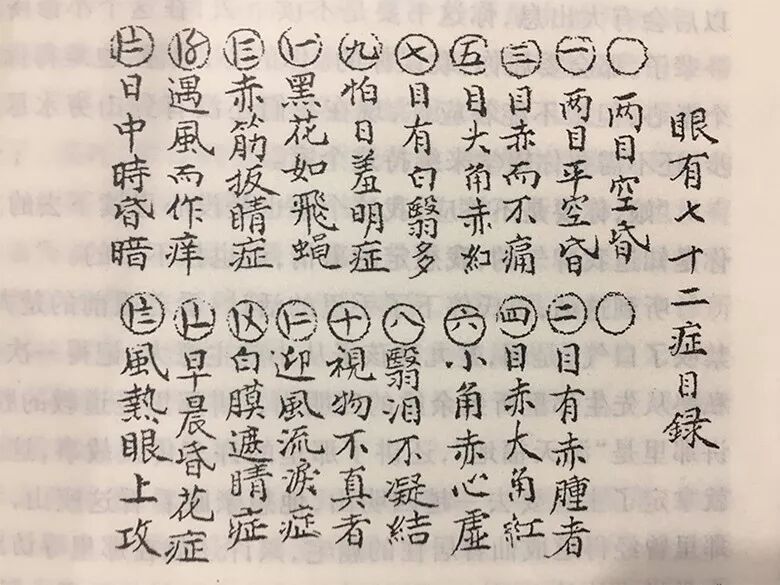 眼有七十二症目録
〇兩目空昏 〇
㊀兩目平空昏 ㊁目有赤腫者
㊂目赤而不痛 ㊃目赤大角紅
㊄目大角赤紅 ㊅小角赤心虛
㊆目有白翳多 ㊇翳泪不凝結
㊈怕日羞明症 ㊉視物不真者
黑花如飛蝇 迎風流淚症
赤筋扳睛症 白膜遮睛症
遇風而作痒 早晨昏花症
日中時昏暗 風熱眼上攻